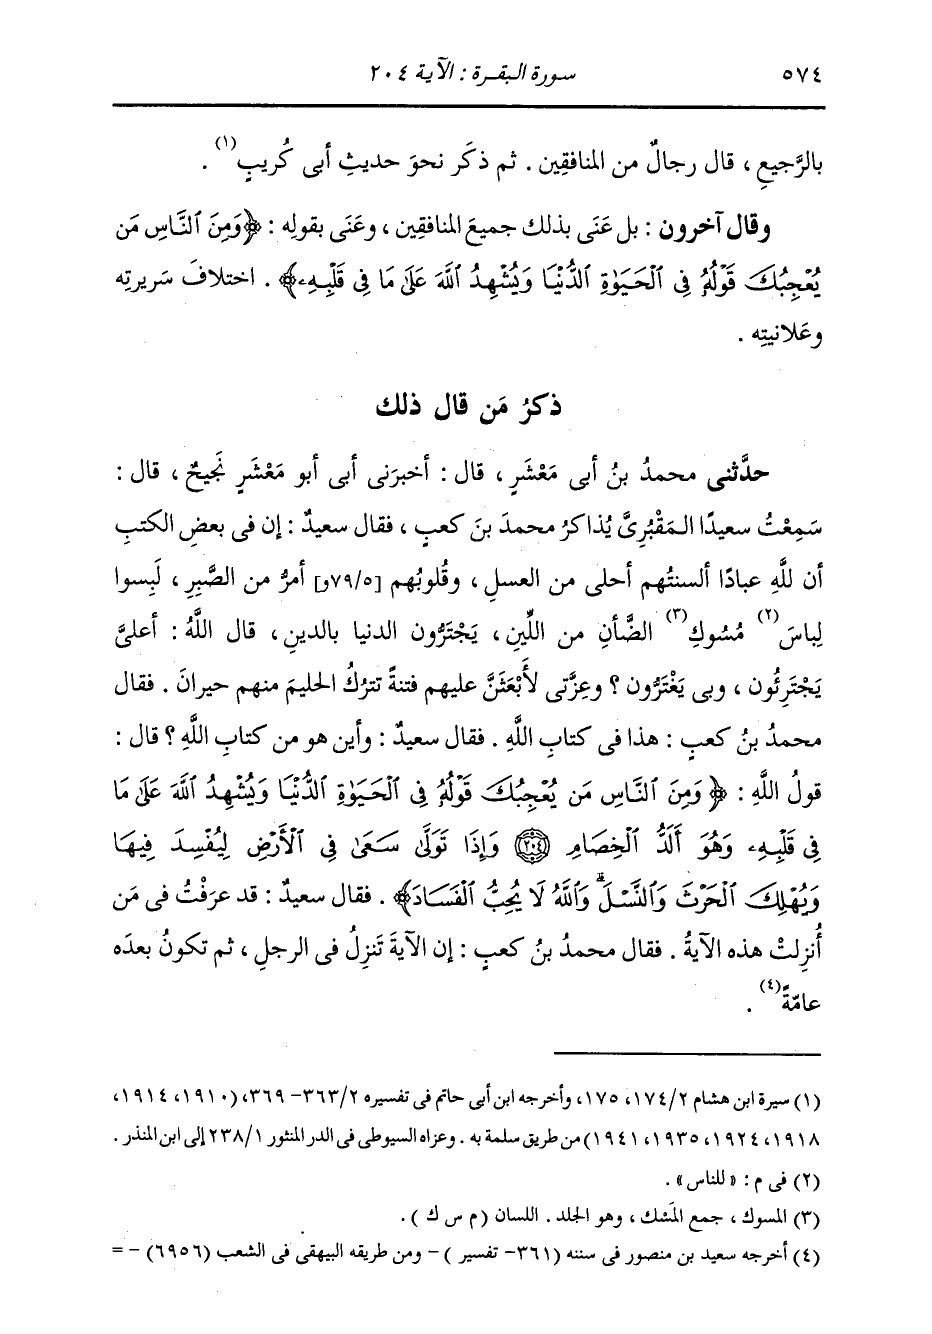 ٥٧٤ سورة البقرة : الآية ٢٠٤
بالرَّجيعِ ، قال رجالٌ من المنافقِين . ثم ذكَر نحوَ حديثِ أبى كُريبٍ(١) .
وقال آخرون : بل عَنَى بذلك جميعَ المنافقِين ، وعَنَى بقولِه : ﴿وَمِنَ ٱلنَّاسِ مَن
يُعْجِبُكَ قَوْلُهُۥ فِى ٱلْحَيَوٰةِ ٱلدُّنْيَا وَيُشْهِدُ ٱللَّهَ عَلَىٰ مَا فِى قَلْبِهِۦ﴾ . اختلافَ سَريرتِه
وعَلانيتِه .
ذكرُ مَن قال ذلك
حدَّثنى محمدُ بنُ أبى مَعْشَرٍ ، قال : أخبرَنى أبى أبو مَعْشَرٍ نَجيحٌ ، قال :
سَمِعْتُ سعيدًا المَقْبُرِىَّ يُذاكرُ محمدَ بنَ كعبٍ ، فقال سعيدٌ : إن فى بعضِ الكتبِ
أن للَّهِ عبادًا ألسنتُهم أحلى من العسلِ ، وقُلوبُهم [٧٩/٥و] أمرُّ من الصَّبِرِ ، لَبِسوا
لِباسَ(٢) مُسُوكِ(٣) الضَّأنِ من اللِّينِ ، يَجْتَرُّون الدنيا بالدينِ ، قال اللَّهُ : أعلىَّ
يَجْتَرِئُون ، وبى يَغْتَرُّون ؟ وعِزَّتى لأَبْعَثَنَّ عليهم فتنةً تترُكُ الحليمَ منهم حيرانَ . فقال
محمدُ بنُ كعبٍ : هذا فى كتابِ اللَّهِ . فقال سعيدٌ : وأين هو من كتابِ اللَّهِ ؟ قال :
قولُ اللَّهِ : ﴿وَمِنَ ٱلنَّاسِ مَن يُعْجِبُكَ قَوْلُهُۥ فِى ٱلْحَيَوٰةِ ٱلدُّنْيَا وَيُشْهِدُ ٱللَّهَ عَلَىٰ مَا
فِى قَلْبِهِۦ وَهُوَ أَلَدُّ ٱلْخِصَامِ ﴿٢٠٤﴾ وَإِذَا تَوَلَّىٰ سَعَىٰ فِى ٱلْأَرْضِ لِيُفْسِدَ فِيهَا
وَيُهْلِكَ ٱلْحَرْثَ وَٱلنَّسْلَ ۗ وَٱللَّهُ لَا يُحِبُّ ٱلْفَسَادَ﴾ . فقال سعيدٌ : قد عرَفْتُ فى مَن
أُنزِلتْ هذه الآيةُ . فقال محمدُ بنُ كعبٍ : إن الآيةَ تَنزِلُ فى الرجلِ ، ثم تكونُ بعدَه
عامَّةً(٤) .
(١) سيرة ابن هشام ١٧٤/٢، ١٧٥، وأخرجه ابن أبى حاتم فى تفسيره ٣٦٣/٢- ٣٦٩، (١٩١٠، ١٩١٤،
١٩١٨، ١٩٢٤، ١٩٣٥، ١٩٤١) من طريق سلمة به . وعزاه السيوطى فى الدر المنثور ٢٣٨/١ إلى ابن المنذر .
(٢) فى م : « للناس » .
(٣) المسوك ، جمع المَسْك ، وهو الجلد . اللسان ( م س ك ) .
(٤) أخرجه سعيد بن منصور فى سننه (٣٦١- تفسير ) - ومن طريقه البيهقى فى الشعب (٦٩٥٦) - =